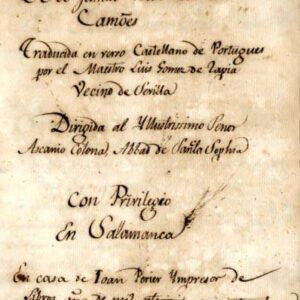 Camões
Traducida en verso Castellano de Portugues
por el Maestro Luis Gomez de Tapia
Vecino de Sevilla
Dirigida al Yllustrissimo Señor
Ascanio Colona, Abbad de Santa Sophia
Con Privilegio
En Salamanca
En casa de Ioan Perier Ympresor de
Libros